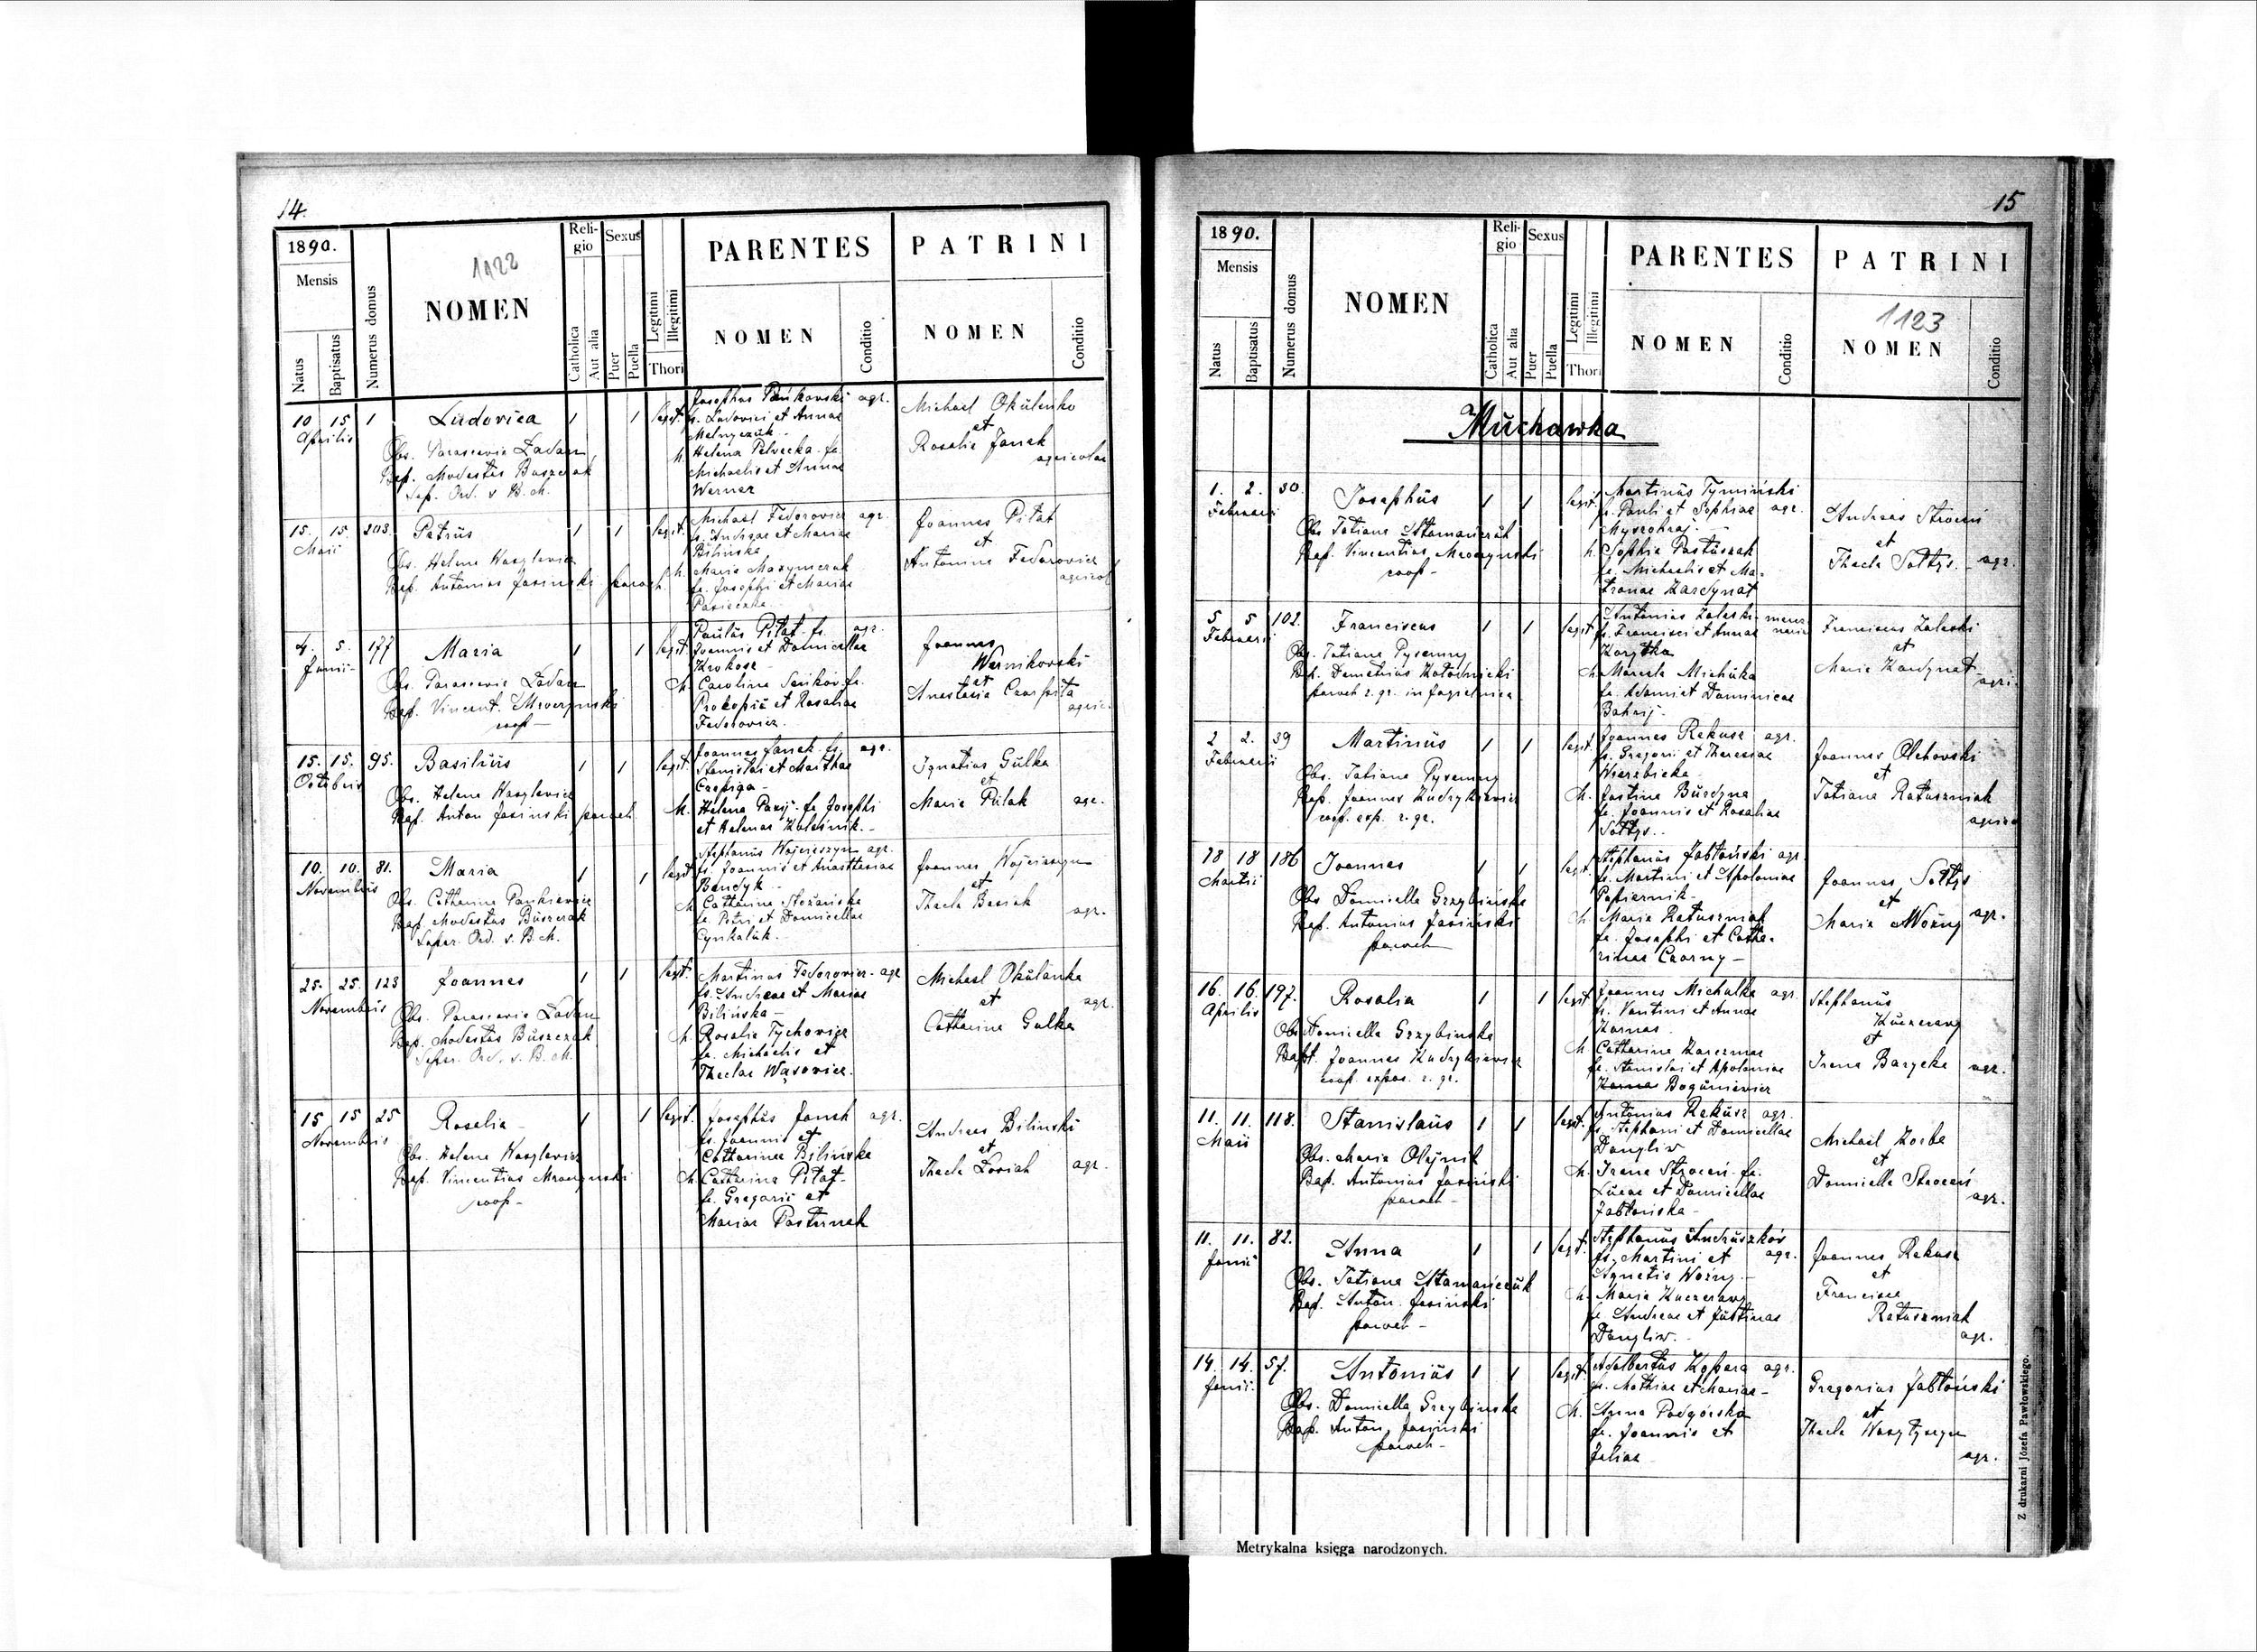 14.
1890.
Mensis
Natus
Baptisatus
Numerus domus
1122
NOMEN
Religio
Catholica
Aut alia
Sexus
Puer
Puella
Legitimi
Illegitimi
Thori
PARENTES
NOMEN
Conditio
PATRINI
NOMEN
Conditio
10 15 1 Ludovica 1 1 legit.
Aprilis
Obs. Parascevia Ładan
Bap. Modestus Buszczak
Sap. Ord. s. B. M.
Josephus Pańkovski agr.
fs. Ludovici et Annae
Melnyczuk -
M. Helena Pelvecka fa.
Michaelis et Annae
Werner
Michael Okulenko
et
Rosalia Janek
agricolae
15. 15. 203. Petrus 1 1 legit.
Maii
Obs. Helena Wasylevicz
Bap. Antonius Jasinski paroch.
Michael Fedorovicz agr.
fs. Andreae et Mariae
Bilińska
M. Maria Maxymczuk
fa. Josephi et Mariae
Pasieczna.
Joannes Pilat
et
Antonina Fedorovicz
agricol.
4. 5. 177 Maria 1 1 legit.
Junii
Obs. Parascevia Ładan
Bap. Vincent. Mroczynski
coop -
Paulus Pilat fs. agr.
Joannis et Domicellae
Krokosz -
M. Carolina Seńkov fa.
Prokopii et Rosaliae
Fedorovicz.
Joannes
Wernikovski
et
Anastasia Czarpita
agric.
15. 15. 95. Basilius 1 1 legit.
Octobris
Obs. Helena Wasylevicz
Bap. Anton Jasinski paroch
Joannes Janek fs. agr.
Stanislai et Marthae
Czepiga -
M. Helena Paxij fa Josephi
et Helenae Kolesnik. -
Ignatius Gulka
et
Maria Pilak agr.
10. 10. 81. Maria 1 1 legit.
Novembris
Obs. Catharina Pankievicz
Bap. Modestus Buszczak
Super. Ord. s. B. M.
Stephanus Wojcieszyn agr.
fs. Joannis et Anasthasiae
Bendyk -
M. Catharina Stożańska
fa. Petri et Domicellae
Cynkaluk.
Joannes Wojcieszyn
et
Thecla Beciak
agr.
25. 25. 123 Joannes 1 1 legit.
Novembris
Obs. Parascevia Ładan
Bap. Modestus Buszczak
Super. Ord. s. B. M.
Martinus Fedorovicz - agr
fs. Andreae et Mariae
Bilińska -
M. Rosalia Tychovicz
fa. Michaelis et
Theclae Wąsovicz.
Michael Okulanka
et agr.
Catharina Gulka
15 15 25 Rosalia 1 1 legit.
Novembris
Obs. Helena Wasylevicz
Bap. Vincentius Mroczynski
coop -
Josephus Janek agr.
fs. Joannis et
Catharinae Bilińska
M. Catharina Pilat
fa. Gregorii et
Mariae Pasternak
Andreas Bilinski
et
Thecla Łosiak agr.
15
1890.
Mensis
Natus
Baptisatus
Numerus domus
NOMEN
Religio
Catholica
Aut alia
Sexus
Puer
Puella
Legitimi
Illegitimi
Thori
PARENTES
NOMEN
Conditio
PATRINI
1123
NOMEN
Conditio
Muchawka
1. 2. 30. Josephus 1 1 legit.
Februarii
Obs Tatiana Atamańczuk
Bap. Vincentius Mroczynski
coop -
Martinus Tymiński
fs. Pauli et Sophiae agr.
Myszohraj -
M. Sophia Pastuszak
fa. Michaelis et Ma-
tronae Kardynat
Andreas Stroceń
et
Thecla Sołtys. - agr.
5 5 102. Franciscus 1 1 legit
Februarii
Obs. Tatiana Pysenny
Bap. Demetrius Kołodnicki
paroch r. gr. in Jagielnica
Antonius Zaleski
fs. Francisci et Annae
Korytka
M. Marcela Michulka
fa. Adami et Dominicae
Bahrij -
Franciscus Zaleski
et
Maria Kardynat -
agri.
2 2. 39 Martinus 1 1 legit
Februarii
Obs. Tatiana Pysenny
Bap. Joannes Kudrykiewicz
coop. exp. r. gr.
Joannes Rekusz agr.
fs. Gregorii et Theresiae
Wierzbicka
M. Justina Burdyna
fa. Joannis et Rosaliae
Sołtys..
Joannes Olchovski
et
Tatiana Ratuszniak
18 18 186 Joannes 1 1 legit.
Martii
Obs Domicella Grzybińska
Bap. Antonius Jasiński
paroch
Stephanus Jabłoński agr.
fs. Martini et Apoloniae
Papiernik -
M. Maria Ratuszniak
fa. Josephi et Catha-
rinae Czorny -
Joannes Sołtys
et
Maria Woźny agr.
16. 16. 197. Rosalia 1 1 legit
Aprilis
Obs Domicella Grzybinska
Bapt. Joannes Kudrykiewicz
coop. expos. r. gr.
Joannes Michulka agr.
fs. Vantini et Annae
Karnas.
M. Catharina Karczmar
fa. Stanislai et Apoloniae
Boguniewicz
Stephanus
Kuczerawy
et
Irena Barycka agr.
11. 11. 118. Stanislaus 1 1 legit.
Maii
Obs. Maria Olejnik
Bap. Antonius Jasiński
paroch -
Antonius Rekusz agr.
fs. Stephani et Domicellae
Dangliw
M. Irena Stroceń fa.
Lucae et Domicellae
Jabłońska -
Michael Korba
et
Domicella Stroceń
agr.
11. 11. 82. Anna 1 1 legit.
Junii
Obs. Tatiana Atamańczuk
Bap. Anton. Jasiński
paroch -
Stephanus Andruszków
fs. Martini et agr.
Agnetis Woźny. -
M. Maria Kuczerawy
fa. Andreae et Justinae
Dangliw. -
Joannes Rekusz
et
Francisca
Ratuszniak
agr.
14. 14. 57. Antonius 1 1 legit.
Junii.
Obs. Domicella Grzybinska
Bap. Anton. Jasiński
paroch -
Adalbertus Kopera agr.
fs. Mathiae et Mariae -
M. Anna Podgórska
fa. Joannis et
Juliae
Gregorius Jabłoński
et
Thecla Wasylyszyn
agr.
Metrykalna księga narodzonych.
Z drukarni Józefa Pawłowskiego.